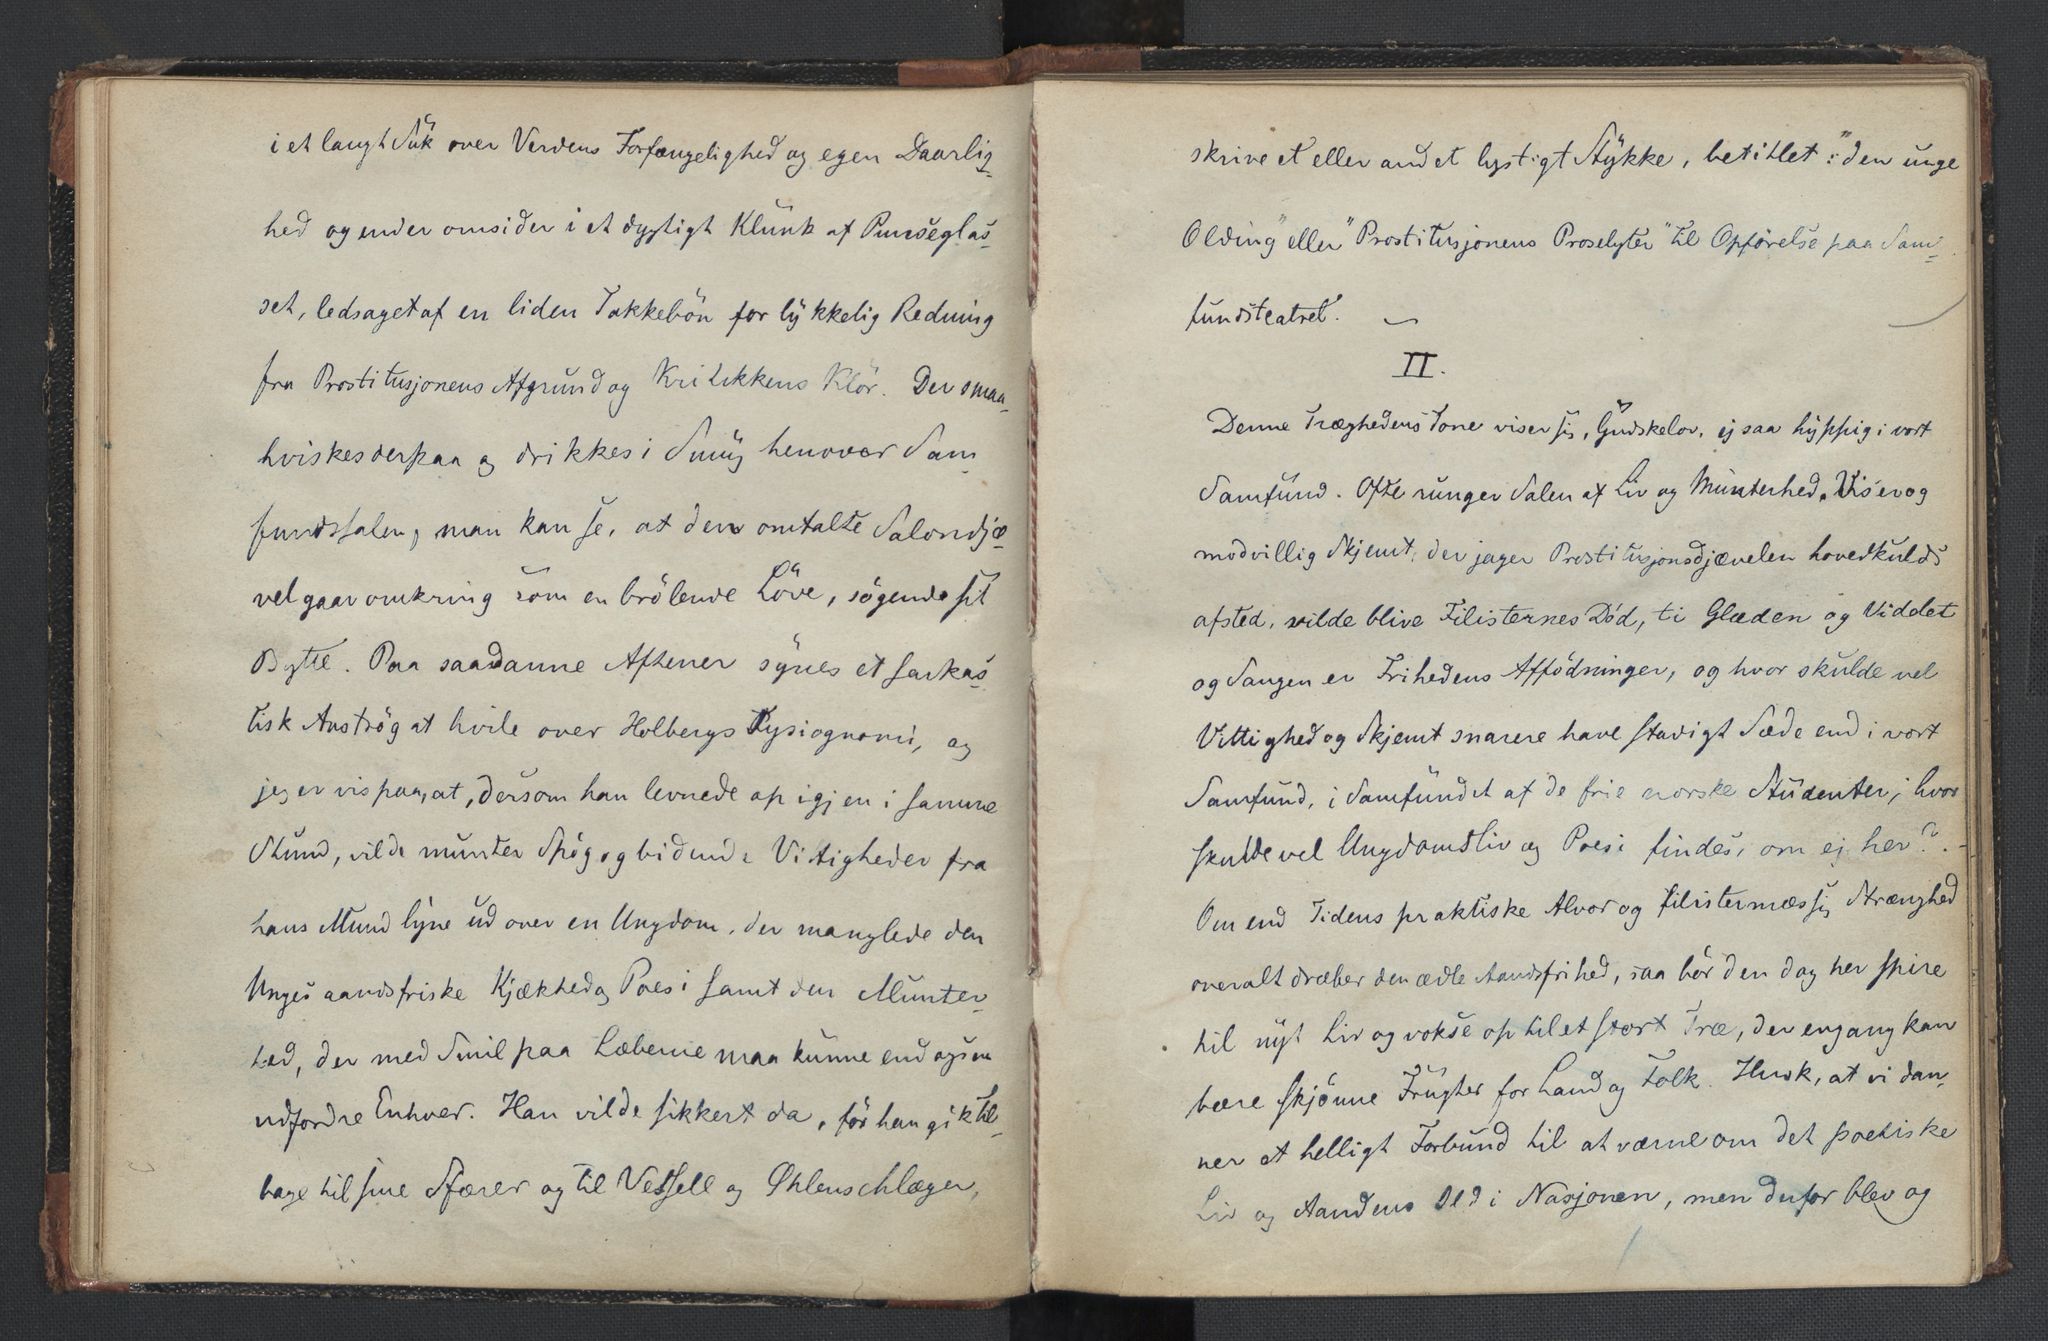 i et langt Suk over Verdens Forfængelighed og egen Daarlig-
hed og ender omsider i et dygtigt Klunk af Punseglas-
set, ledsaget af en liden Takkebön for lykkelig Redning
fra Prostitusjonens Afgrund og Kritikkens Klör. Der smaa-
hviskes derpaa og drikkes i Smug henover Sam-
fundssalen, man kan se, at den omtalte Salondjæ-
vel gaar omkring som en brölende Löve, sögende sit
Bytte. Paa saadanne Aftener synes et sarkas-
tisk Anströg at hvile over Holbergs Fysiognomi, og
jeg er vis paa, at, dersom han levnede op igjen i samme
Stund, vilde munter Spög og bidende Vitigheder fra
hans Mund lyne ud over en Ungdom, der manglede den
Unges aandsfriske Kjækhed og Poesi samt den Munter-
hed, der med Smil paa Læberne maa kunne endogsaa
udfordre Enhver. Han vilde sikkert da, för han gik til-
bage til sine Sfærer og til Vessell og Øhlenschlæger,
skrive et eller andet lystigt Stykke, betitlet: "den unge
Olding" eller "Prostitusjonens Proselyter" til Opförelse paa Sam-
fundsteatret.
II.
Denne Træghedens Tone viser sig, Gudskelov, ej saa hyppig i vort
Samfund. Ofte runger Salen af Liv og Munterhed. Viser og
modvillig Skjemt, der jager Prostitusjonsdjævelen hovedkulds
afsted, vilde blive Filisternes Död, ti Glæden og Viddet
og Sangen er Frihedens Affödninger, og hvor skulde vel
Vittighed og Skjemt snarere have stadigt Sæde end i vort
Samfund, i Samfundet af de frie norske Studenter, hvor
skulde vel Ungdomsliv og Poesi findes, om ej her?
Om end Tidens praktiske Alvor og filistermæssig Strænghed
overalt dræber den ædle Aandsfrihed, saa bör den dog her spire
til nyt Liv og vokse op til et stort Træ, der engang kan
bære skjönne Frugter for Land og Folk. Husk, at vi dan-
ner et helligt Forbund til at værne om det poetiske
Liv og Aandens Ild i Nasjonen, men derfor blev og